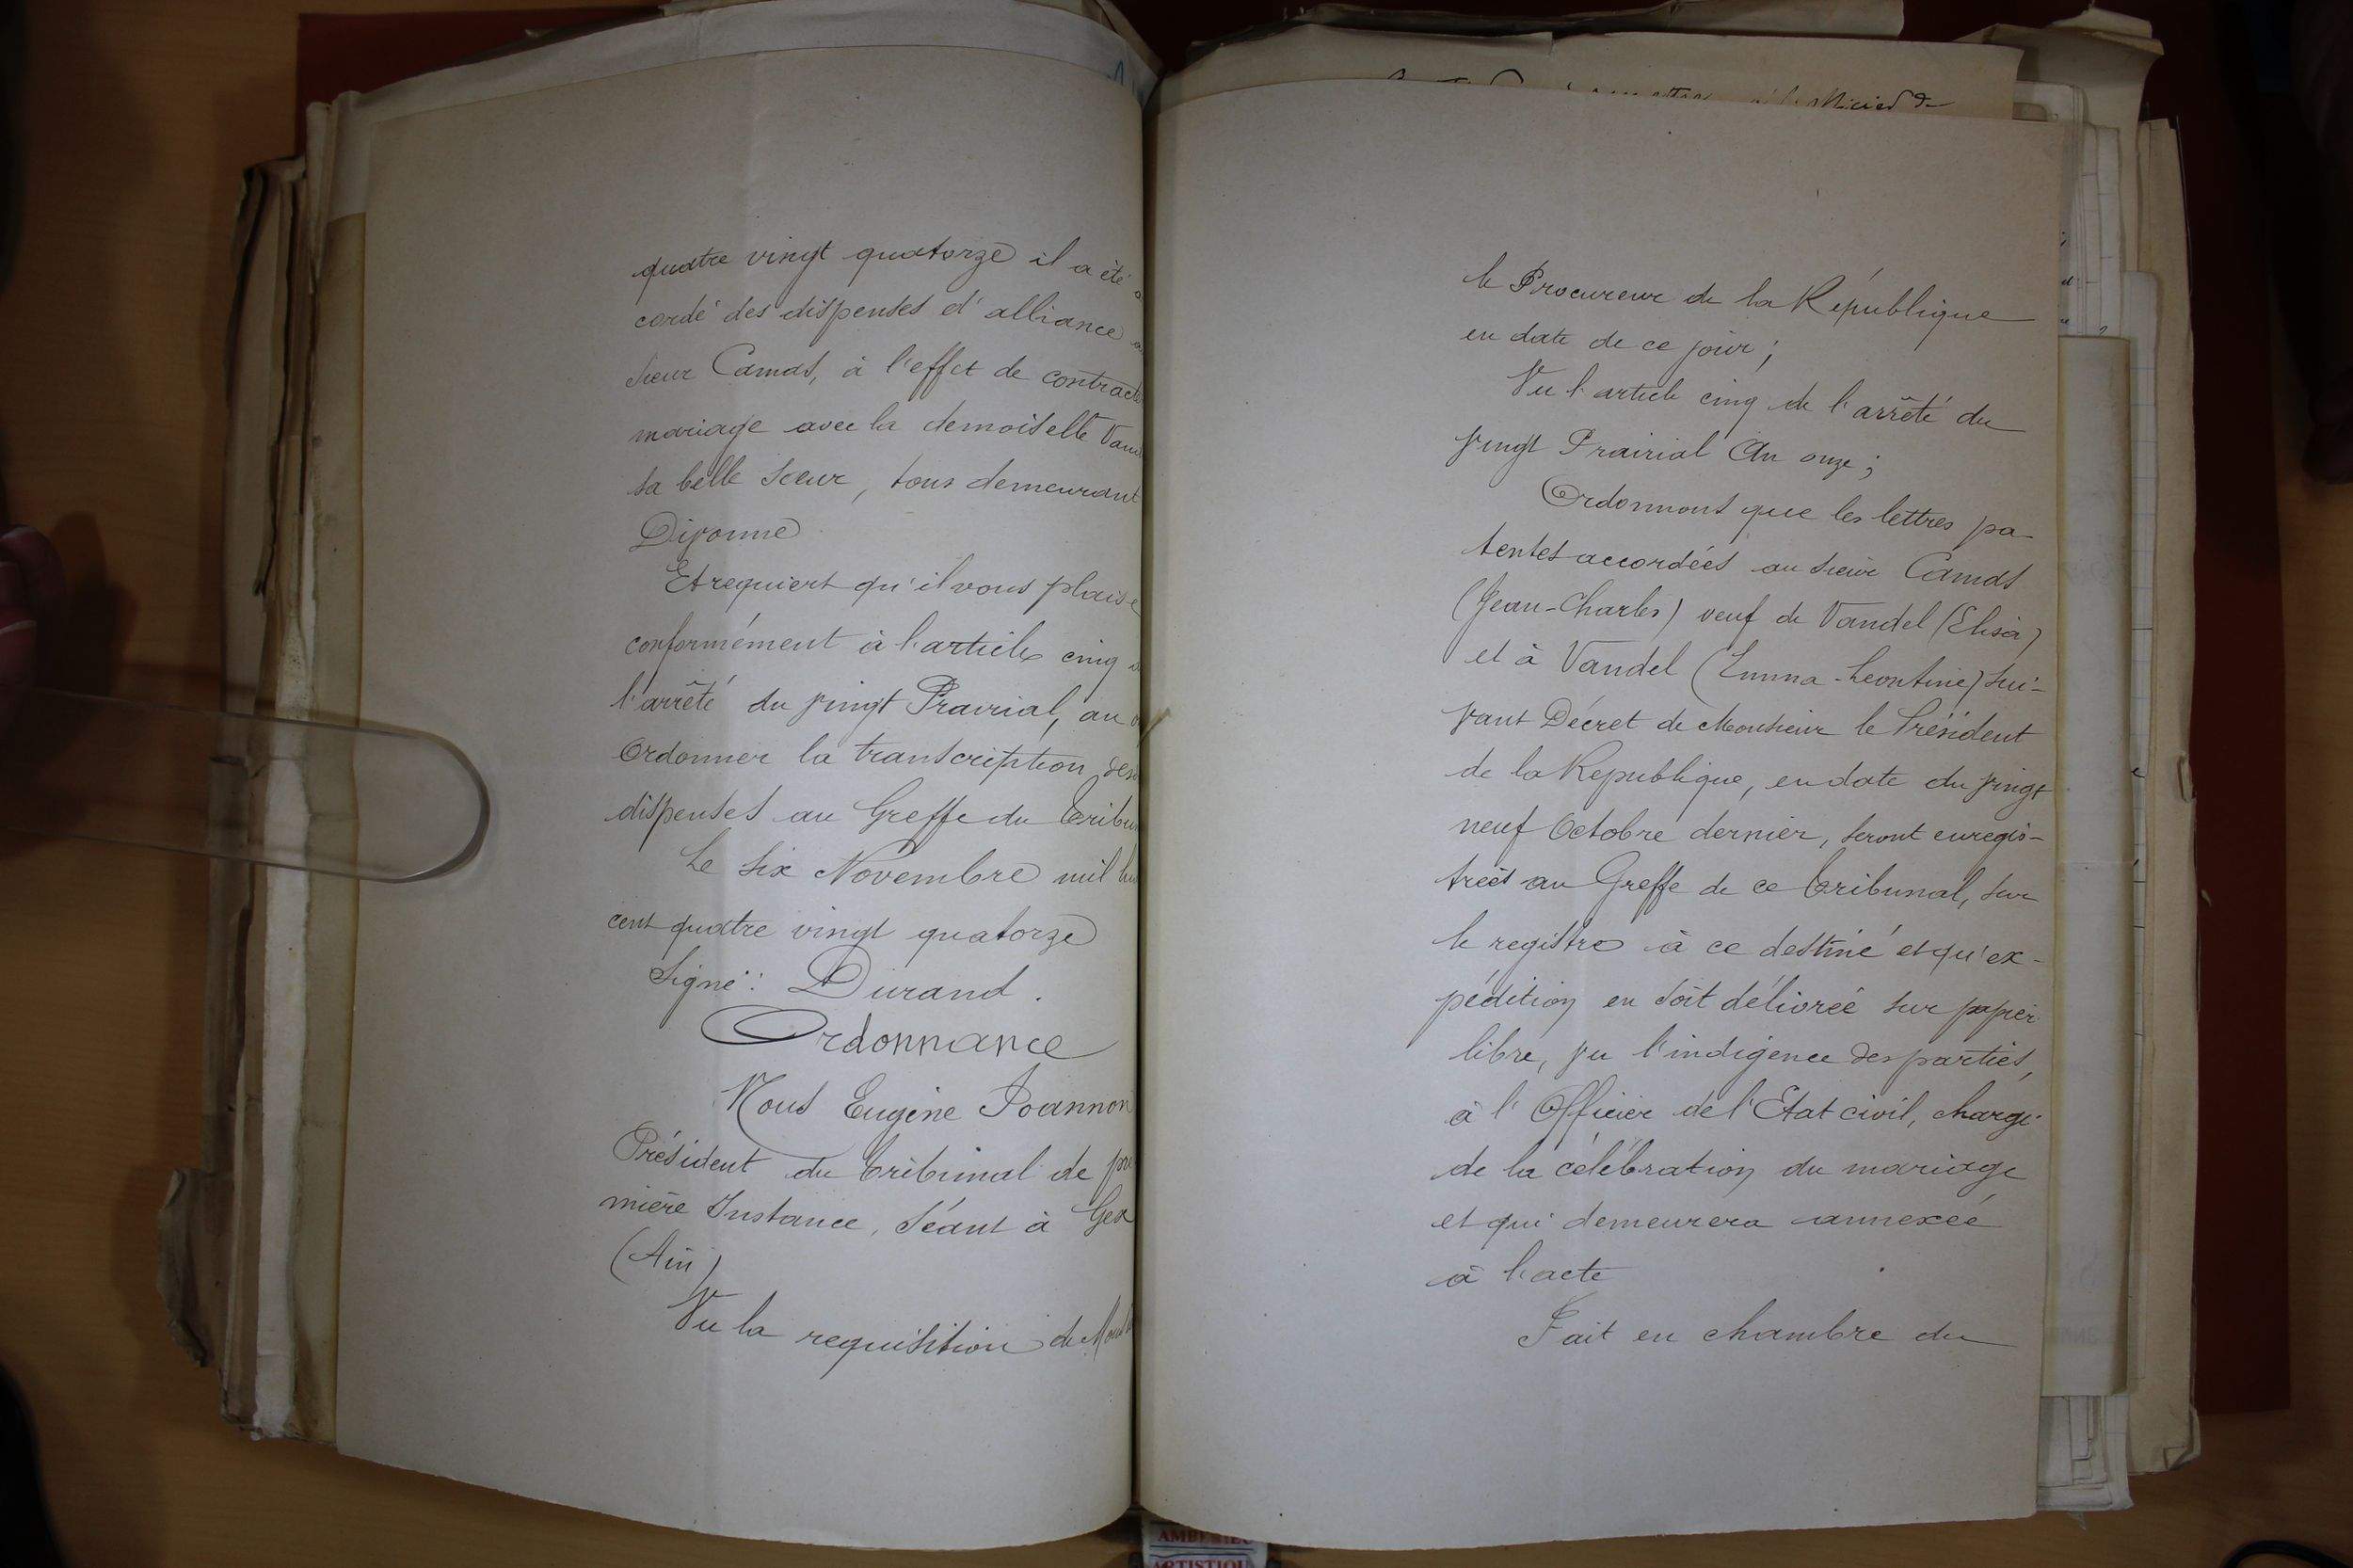 quatre vingt quatorze il a été
cordé des dispenses d'alliance
sieur Camas, à l'effet de contracte
mariage avec la demoiselle Van
sa belle sœur, tous demeurant
Divonne
Et requiert qu'il vous plaise
conformément à l'article cinq
l'arrêté du vingt Prairial, an
Ordonner la transcription des
dispenses au Greffe du Tribu
Le six Novembre mil hu
cent quatre vingt quatorze
Signé: Durand.
Ordonnance
Nous Eugène Joannon
Président du Tribunal de pre
mière Instance, séant à Gex
(Ain)
Vu la requisition de Mons
le Procureur de la République
en date de ce jour;
Vu l'article cinq de l'arrêté du
vingt Prairial An onze;
Ordonnons que les lettres pa-
tentes accordées au sieur Camas
(Jean-Charles) veuf de Vandel (Elisa)
et à Vandel (Emma-Leontine) sui-
vant Décret de Monsieur le Président
de la République, en date du vingt
neuf Octobre dernier, seront enregis-
trées au Greffe de ce Tribunal, sur
le registre à ce destiné et qu'ex-
pédition en soit délivrée sur papier
libre, vu l'indigence des parties,
à l'Officier de l'Etat civil, chargé
de la célébration du mariage
et qui demeurera annexée
à l'acte
Fait en chambre du